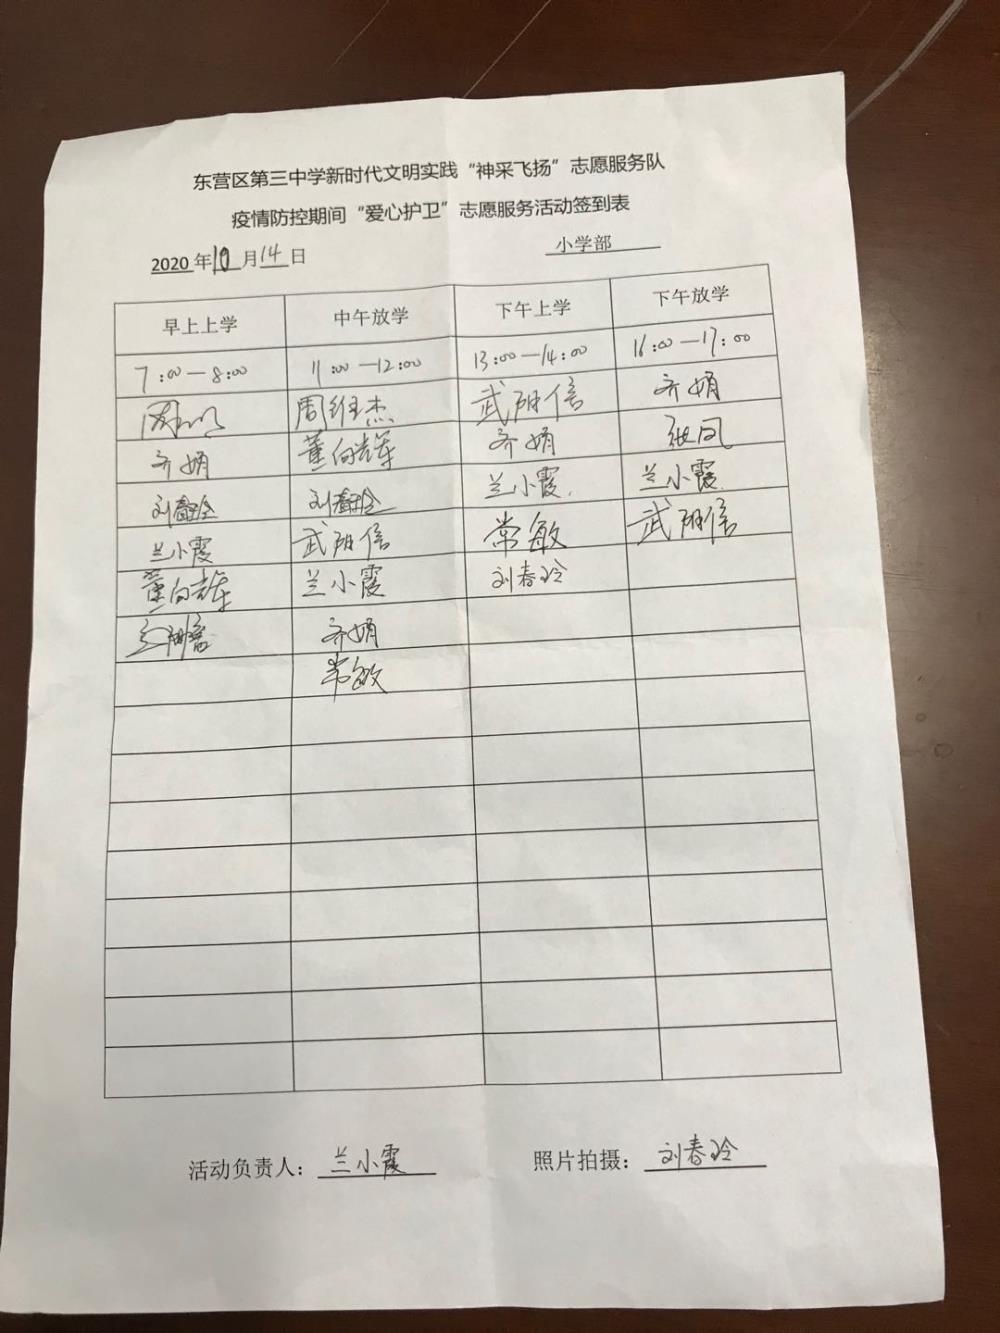 东营区第三中学新时代文明实践“神采飞扬”志愿服务队
疫情防控期间“爱心护卫”志愿服务活动签到表
2020 年 10 月 14 日 小学部
早上上学 中午放学 下午上学 下午放学
7:00—8:00 11:00—12:00 13:00—14:00 16:00—17:00
周维杰 武阳信 齐娟
齐娟 董向辉 齐娟 张凤
刘春玲 刘春玲 兰小霞 兰小霞
兰小霞 武阳信 常敏 武阳信
董向辉 兰小霞 刘春玲
齐娟
常敏
活动负责人：兰小霞 照片拍摄：刘春玲